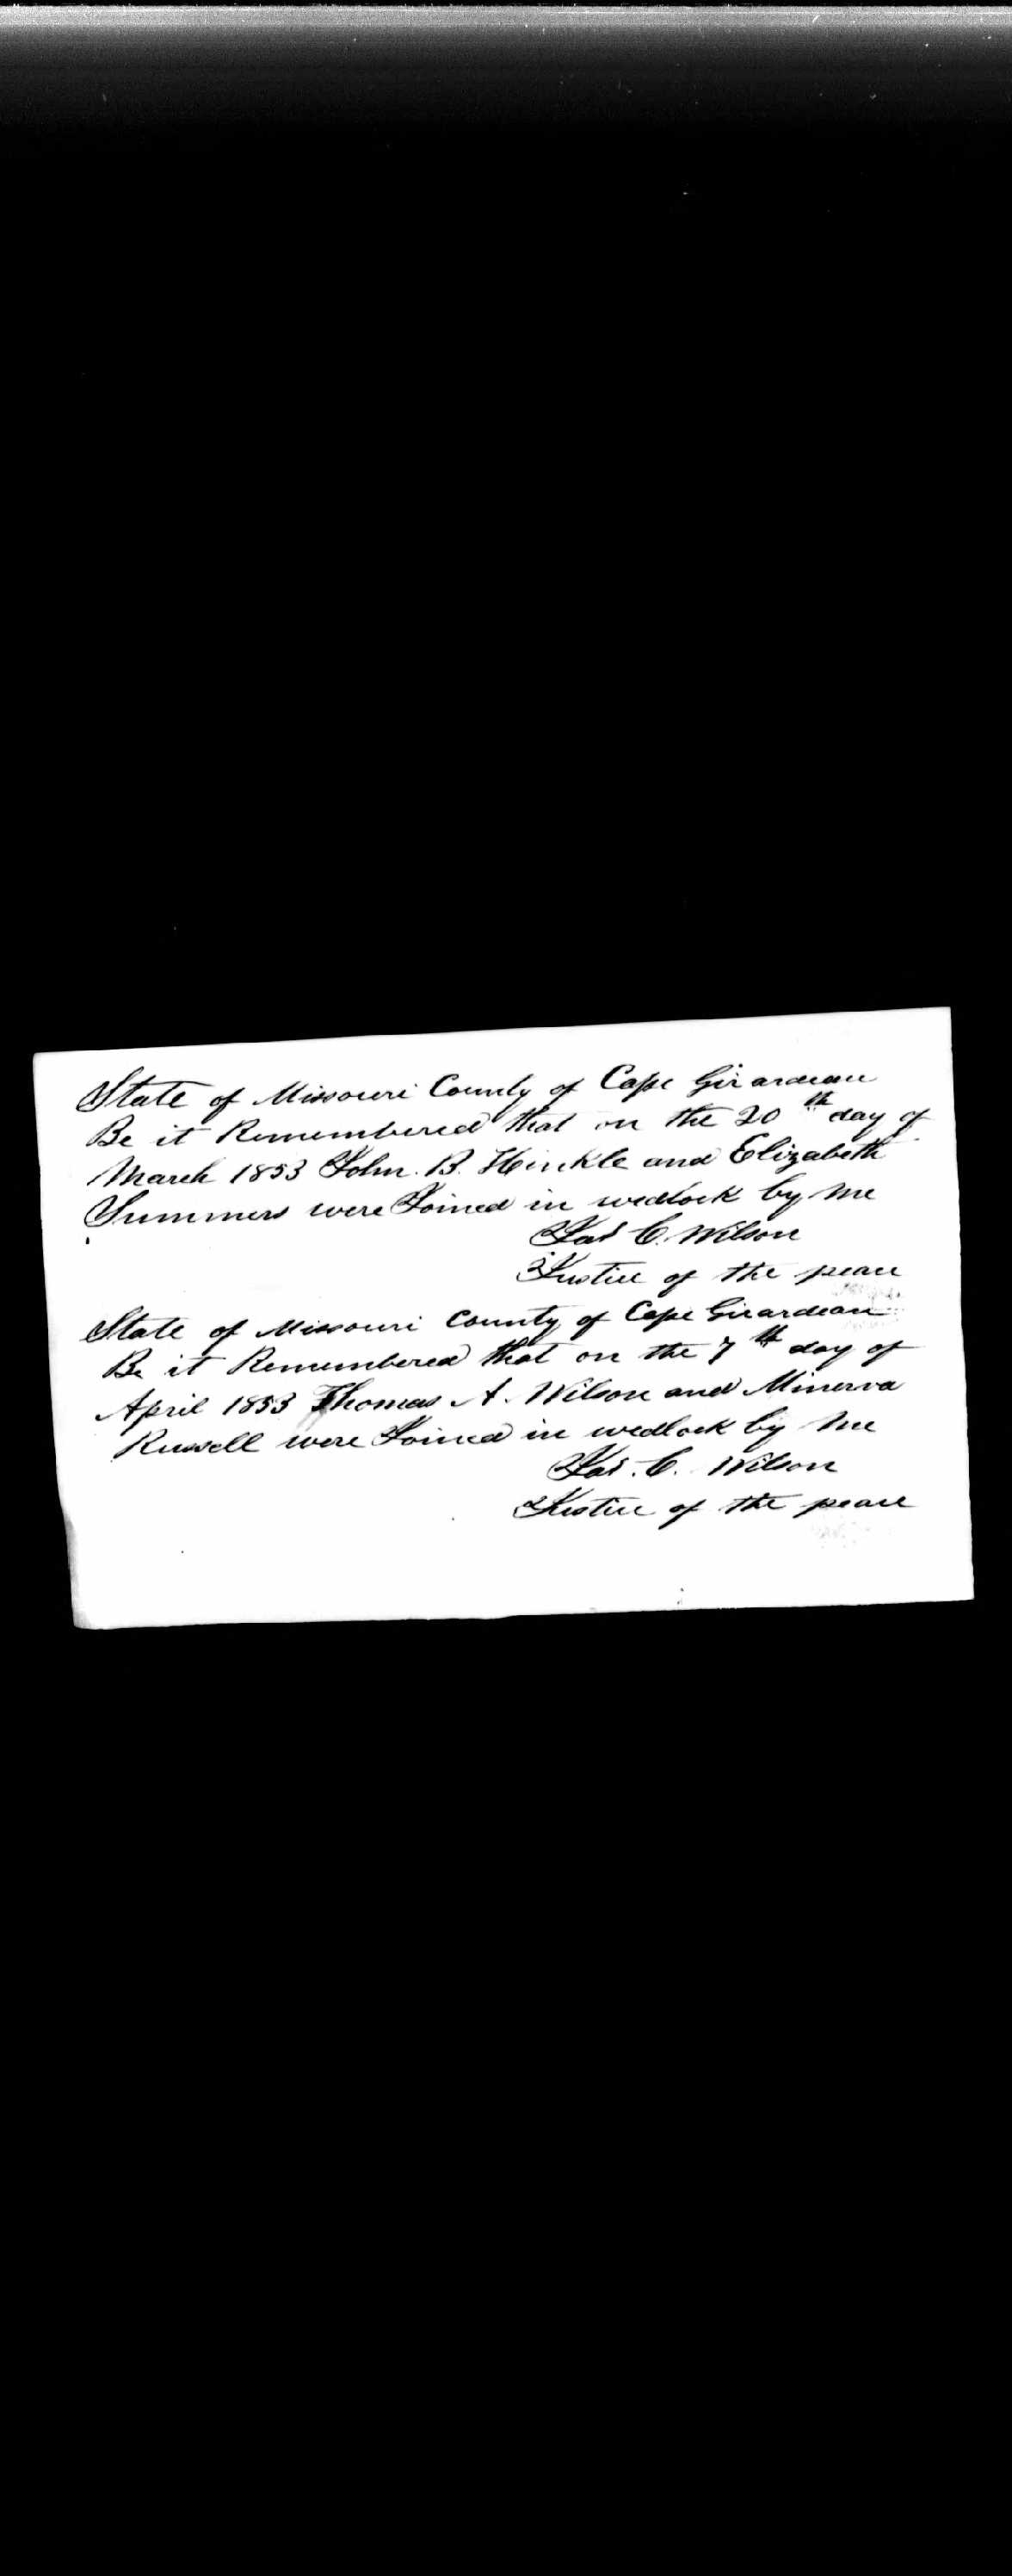 State of Missouri County of Cape Girardeau
Be it Remembered that on the 20th day of
March 1853 John. B. Hinkle and Elizabeth
Summers were Joined in wedlock by me
Jas C. Wilson
Justice of the peace
State of Missouri County of Cape Girardeau
Be it Remembered that on the 7th day of
April 1853 Thomas A. Wilson and Minerva
Russell were Joined in wedlock by me
Jas. C. Wilson
Justice of the peace